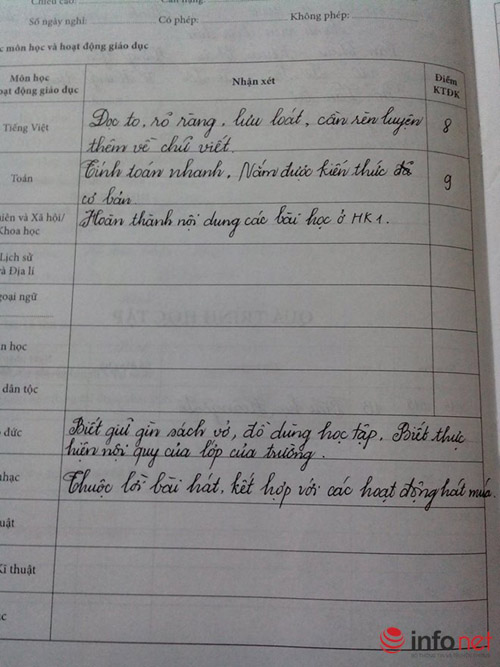 Chiều cao: Cân nặng:
Số ngày nghỉ: Có phép: Không phép:
c môn học và hoạt động giáo dục
Môn học
oạt động giáo dục
Nhận xét
Điểm
KTĐK
Tiếng Việt
Đọc to, rõ ràng, lưu loát, cần rèn luyện
thêm về chữ viết.
8
Toán
Tính toán nhanh, Nắm được kiến thức đã
cơ bản.
9
hiên và Xã hội/
Khoa học
Hoàn thành nội dung các bài học ở HK1.
Lịch sử
và Địa lí
goại ngữ
n học
dân tộc
đức
Biết giữ gìn sách vở, đồ dùng học tập. Biết thực
hiện nội quy của lớp của trường.
nhạc
Thuộc lời bài hát, kết hợp với các hoạt động hát múa.
uật
Kĩ thuật
ục
QUÁ TRÌNH HỌC TẬP
infonet